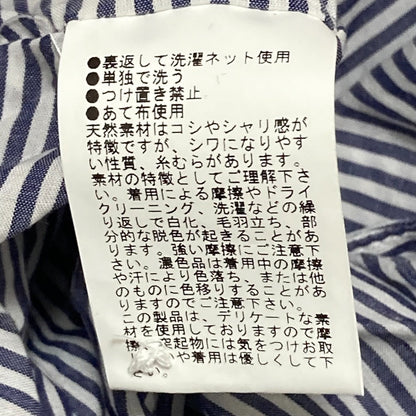 ●裏返して洗濯ネット使用
●単独で洗う
●つけ置き禁止
●あて布使用
天然素材はコシやシャリ感が
特徴ですが、シワになりやす
い性質、糸むらがあります。
素材の特徴としてご理解下さ
い。着用による摩擦やドライ
クリーニング、洗濯などの繰
り返しで白化、毛羽立ち、部
分的な脱色が起きることがあ
ります。強い摩擦にご注意下
さい。濃色品は着用中の摩擦
や汗により色落ち、または他
のものに色移りすることがあ
りますのでご注意下さい。
この製品は、デリケートな素
材を使用しておりますので摩
擦、突起物には気をつけお取
いや着用は優しくして下
さい。